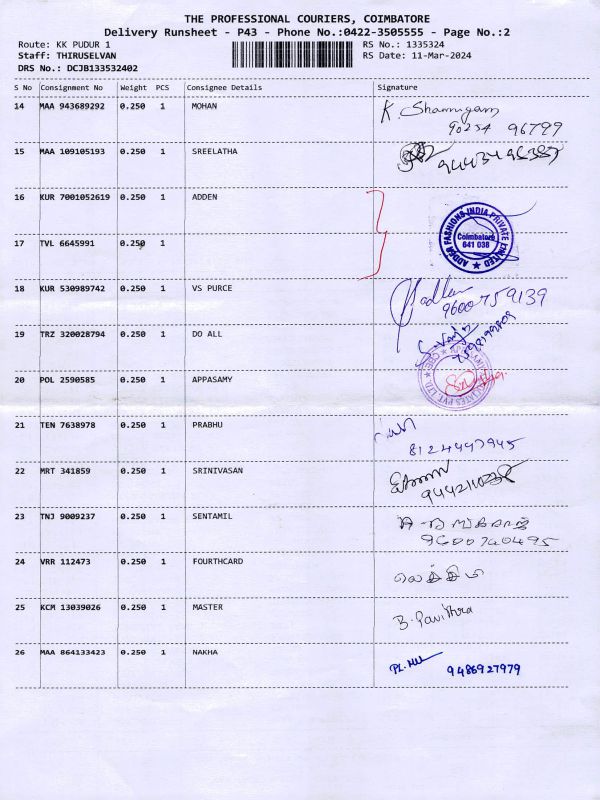 THE PROFESSIONAL COURIERS, COIMBATORE
Delivery Runsheet - P43 - Phone No.:0422-3505555 - Page No.:2
Route: KK PUDUR 1 RS No.: 1335324
Staff: THIRUSELVAN RS Date: 11-Mar-2024
DRS No.: DCJB133532402
S No Consignment No Weight PCS Consignee Details Signature
14 MAA 943689292 0.250 1 MOHAN K. Shanmugam
90254 96799
15 MAA 109105193 0.250 1 SREELATHA
16 KUR 7001052619 0.250 1 ADDEN
ADDER FASHIONS INDIA PRIVATE LIMITED
Coimbatore
641 038
17 TVL 6645991 0.250 1
18 KUR 530989742 0.250 1 VS PURCE
9600759139
19 TRZ 320028794 0.250 1 DO ALL
20 POL 2590585 0.250 1 APPASAMY
21 TEN 7638978 0.250 1 PRABHU
8124447945
22 MRT 341859 0.250 1 SRINIVASAN
23 TNJ 9009237 0.250 1 SENTAMIL
9600740495
24 VRR 112473 0.250 1 FOURTHCARD
25 KCM 13039026 0.250 1 MASTER B. Pavithra
26 MAA 864133423 0.250 1 NAKHA
9486927979